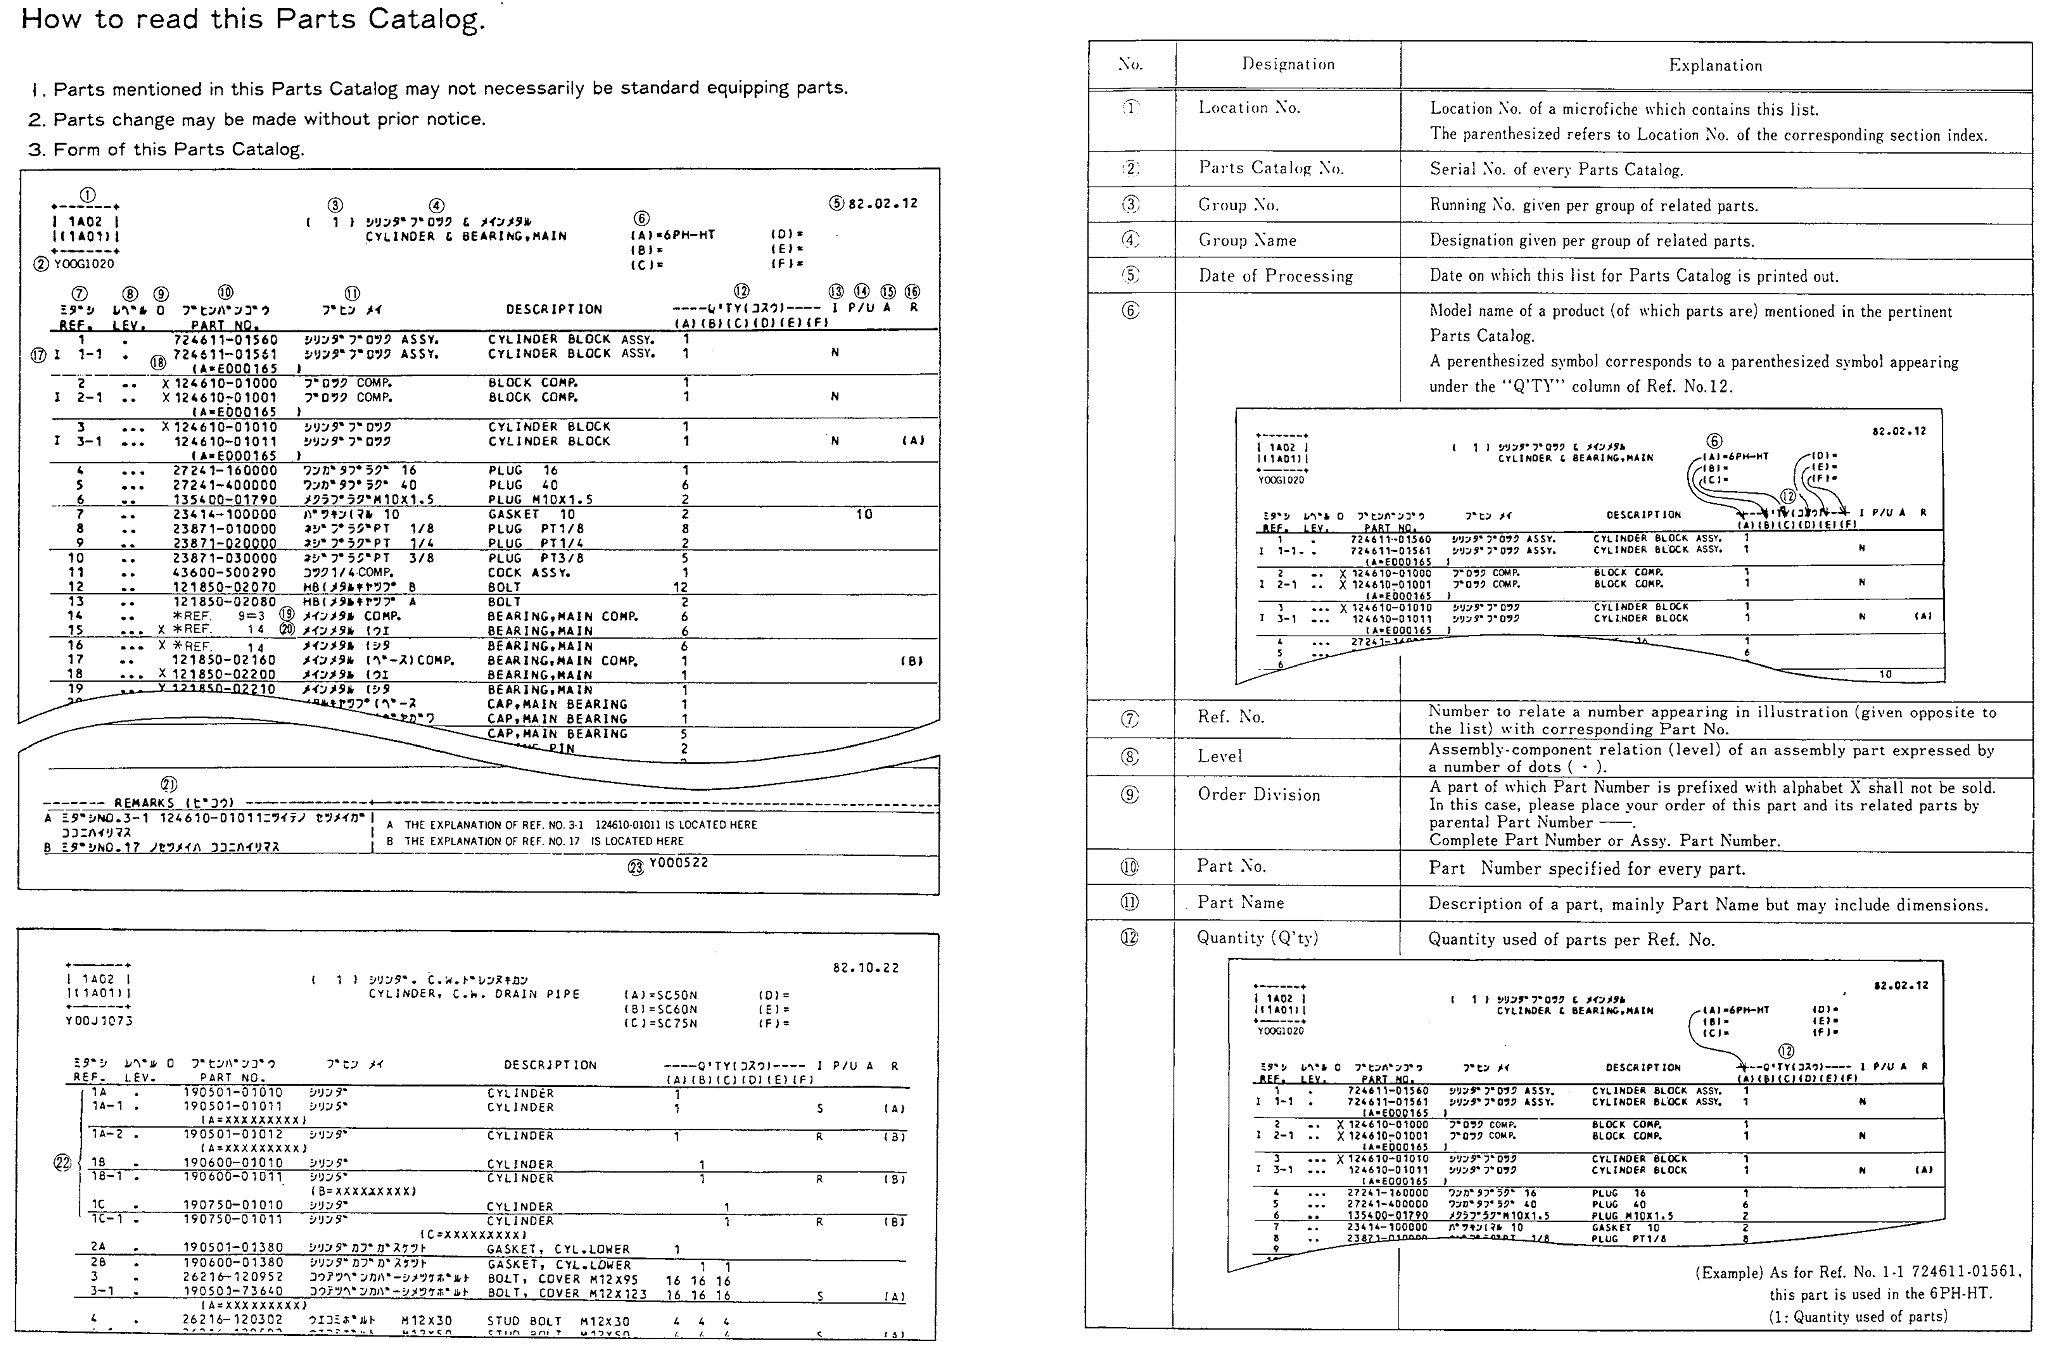 How to read this Parts Catalog.
1. Parts mentioned in this Parts Catalog may not necessarily be standard equipping parts.
2. Parts change may be made without prior notice.
3. Form of this Parts Catalog.
①
| 1A02 |
|(1A01)|
② Y00G1020
③ ④
( 1 ) シリンダ゛フ゛ロツク & メインメタル
CYLINDER & BEARING,MAIN
⑥
(A)=6PH-HT (D)=
(B)= (E)=
(C)= (F)=
⑤ 82.02.12
⑦ ⑧ ⑨ ⑩ ⑪ ⑫ ⑬ ⑭ ⑮ ⑯
ミタ゛シ レヘ゛ル O フ゛ヒンハ゛ンコ゛ウ フ゛ヒン メイ DESCRIPTION ----Q'TY(コスウ)---- I P/U A R
REF. LEV. PART NO. (A)(B)(C)(D)(E)(F)
1 . 724611-01560 シリンダ゛フ゛ロツク ASSY. CYLINDER BLOCK ASSY. 1
⑰ I 1-1 . 724611-01561 シリンダ゛フ゛ロツク ASSY. CYLINDER BLOCK ASSY. 1 N
⑱ (A=E000165 )
2 .. X 124610-01000 フ゛ロツク COMP. BLOCK COMP. 1
I 2-1 .. X 124610-01001 フ゛ロツク COMP. BLOCK COMP. 1 N
(A=E000165 )
3 ... X 124610-01010 シリンダ゛フ゛ロツク CYLINDER BLOCK 1
I 3-1 ... 124610-01011 シリンダ゛フ゛ロツク CYLINDER BLOCK 1 N (A)
(A=E000165 )
4 ... 27241-160000 ワンカ゛タフ゛ラク゛ 16 PLUG 16 1
5 ... 27241-400000 ワンカ゛タフ゛ラク゛ 40 PLUG 40 6
6 .. 135400-01790 メクラフ゜ラク゛M10X1.5 PLUG M10X1.5 2
7 .. 23414-100000 ハ゜ツキン(マル 10 GASKET 10 2 10
8 .. 23871-010000 ネシ゛フ゜ラク゛PT 1/8 PLUG PT1/8 8
9 .. 23871-020000 ネシ゛フ゜ラク゛PT 1/4 PLUG PT1/4 2
10 .. 23871-030000 ネシ゛フ゜ラク゛PT 3/8 PLUG PT3/8 5
11 .. 43600-500290 コツク1/4 COMP. COCK ASSY. 1
12 .. 121850-02070 HB(メタルキヤツフ゜ B BOLT 12
13 .. 121850-02080 HB(メタルキヤツフ゜ A BOLT 2
14 .. *REF. 9=3 ⑲ メインメタル COMP. BEARING,MAIN COMP. 6
15 ... X *REF. 14 ⑳ メインメタル (ウエ BEARING,MAIN 6
16 ... X *REF. 14 メインメタル (シタ BEARING,MAIN 6
17 .. 121850-02160 メインメタル (ヘ゛ース)COMP. BEARING,MAIN COMP. 1 (B)
18 ... X 121850-02200 メインメタル (ウエ BEARING,MAIN 1
19 ... X 121850-02210 メインメタル (シタ BEARING,MAIN 1
CAP,MAIN BEARING 1
CAP,MAIN BEARING 1
CAP,MAIN BEARING 5
PIN 2
㉑
------- REMARKS (ヒ゛コウ) -------
A ミタ゛シNO.3-1 124610-01011ニツイテノ セツメイカ゛
ココニハイリマス
B ミタ゛シNO.17 ノセツメイハ ココニハイリマス
A THE EXPLANATION OF REF. NO. 3-1 124610-01011 IS LOCATED HERE
B THE EXPLANATION OF REF. NO. 17 IS LOCATED HERE
㉓ Y000522
| 1A02 |
|(1A01)|
Y00J1073
( 1 ) シリンダ゛. C.W.ト゛レンヌキカン
CYLINDER, C.W. DRAIN PIPE
(A)=SC50N (D)=
(B)=SC60N (E)=
(C)=SC75N (F)=
82.10.22
ミタ゛シ レヘ゛ル O フ゛ヒンハ゛ンコ゛ウ フ゛ヒン メイ DESCRIPTION ----Q'TY(コスウ)---- I P/U A R
REF. LEV. PART NO. (A)(B)(C)(D)(E)(F)
1A . 190501-01010 シリンダ゛ CYLINDER 1
1A-1 . 190501-01011 シリンダ゛ CYLINDER 1 S (A)
(A=XXXXXXXXX)
1A-2 . 190501-01012 シリンダ゛ CYLINDER 1 R (B)
(A=XXXXXXXXX)
㉒
1B . 190600-01010 シリンダ゛ CYLINDER 1
1B-1 . 190600-01011 シリンダ゛ CYLINDER 1 R (B)
(B=XXXXXXXXX)
1C . 190750-01010 シリンダ゛ CYLINDER 1
1C-1 . 190750-01011 シリンダ゛ CYLINDER 1 R (B)
(C=XXXXXXXXX)
2A . 190501-01380 シリンダ゛カフ゛カ゛スケツト GASKET, CYL.LOWER 1
2B . 190600-01380 シリンダ゛カフ゛カ゛スケツト GASKET, CYL.LOWER 1 1
3 . 26216-120952 コウアツヘ゛ンカハ゛ーシメツケホ゛ルト BOLT, COVER M12X95 16 16 16
3-1 . 190501-73640 コウアツヘ゛ンカハ゛ーシメツケホ゛ルト BOLT, COVER M12X123 16 16 16 S (A)
(A=XXXXXXXXX)
4 . 26216-120302 ウエコミホ゛ルト M12X30 STUD BOLT M12X30 4 4 4
No. Designation Explanation
① Location No. Location No. of a microfiche which contains this list.
The parenthesized refers to Location No. of the corresponding section index.
② Parts Catalog No. Serial No. of every Parts Catalog.
③ Group No. Running No. given per group of related parts.
④ Group Name Designation given per group of related parts.
⑤ Date of Processing Date on which this list for Parts Catalog is printed out.
⑥ Model name of a product (of which parts are) mentioned in the pertinent
Parts Catalog.
A perenthesized symbol corresponds to a parenthesized symbol appearing
under the "Q'TY" column of Ref. No.12.
| 1A02 |
|(1A01)|
Y00G1020
( 1 ) シリンダ゛フ゛ロツク & メインメタル
CYLINDER & BEARING,MAIN
⑥
(A)=6PH-HT (D)=
(B)= (E)=
(C)= (F)=
82.02.12
⑫
ミタ゛シ レヘ゛ル O フ゛ヒンハ゛ンコ゛ウ フ゛ヒン メイ DESCRIPTION Q'TY(コスウ) I P/U A R
REF. LEV. PART NO. (A)(B)(C)(D)(E)(F)
1 . 724611-01560 シリンダ゛フ゛ロツク ASSY. CYLINDER BLOCK ASSY. 1
I 1-1 . 724611-01561 シリンダ゛フ゛ロツク ASSY. CYLINDER BLOCK ASSY. 1 N
(A=E000165 )
2 .. X 124610-01000 フ゛ロツク COMP. BLOCK COMP. 1
I 2-1 .. X 124610-01001 フ゛ロツク COMP. BLOCK COMP. 1 N
(A=E000165 )
3 ... X 124610-01010 シリンダ゛フ゛ロツク CYLINDER BLOCK 1
I 3-1 ... 124610-01011 シリンダ゛フ゛ロツク CYLINDER BLOCK 1 N (A)
(A=E000165 )
4 ... 1
5 ... 6
6
10
⑦ Ref. No. Number to relate a number appearing in illustration (given opposite to
the list) with corresponding Part No.
⑧ Level Assembly-component relation (level) of an assembly part expressed by
a number of dots ( · ).
⑨ Order Division A part of which Part Number is prefixed with alphabet X shall not be sold.
In this case, please place your order of this part and its related parts by
parental Part Number ——.
Complete Part Number or Assy. Part Number.
⑩ Part No. Part Number specified for every part.
⑪ Part Name Description of a part, mainly Part Name but may include dimensions.
⑫ Quantity (Q'ty) Quantity used of parts per Ref. No.
| 1A02 |
|(1A01)|
Y00G1020
( 1 ) シリンダ゛フ゛ロツク & メインメタル
CYLINDER & BEARING,MAIN
(A)=6PH-HT (D)=
(B)= (E)=
(C)= (F)=
82.02.12
⑫
ミタ゛シ レヘ゛ル O フ゛ヒンハ゛ンコ゛ウ フ゛ヒン メイ DESCRIPTION Q'TY(コスウ)---- I P/U A R
REF. LEV. PART NO. (A)(B)(C)(D)(E)(F)
1 . 724611-01560 シリンダ゛フ゛ロツク ASSY. CYLINDER BLOCK ASSY. 1
I 1-1 . 724611-01561 シリンダ゛フ゛ロツク ASSY. CYLINDER BLOCK ASSY. 1 N
(A=E000165 )
2 .. X 124610-01000 フ゛ロツク COMP. BLOCK COMP. 1
I 2-1 .. X 124610-01001 フ゛ロツク COMP. BLOCK COMP. 1 N
(A=E000165 )
3 ... X 124610-01010 シリンダ゛フ゛ロツク CYLINDER BLOCK 1
I 3-1 ... 124610-01011 シリンダ゛フ゛ロツク CYLINDER BLOCK 1 N (A)
(A=E000165 )
4 ... 27241-160000 ワンカ゛タフ゛ラク゛ 16 PLUG 16 1
5 ... 27241-400000 ワンカ゛タフ゛ラク゛ 40 PLUG 40 6
6 .. 135400-01790 メクラフ゜ラク゛M10X1.5 PLUG M10X1.5 2
7 .. 23414-100000 ハ゜ツキン(マル 10 GASKET 10 2
8 .. 23871-010000 1/8 PLUG PT1/8 8
9
(Example) As for Ref. No. 1-1 724611-01561,
this part is used in the 6PH-HT.
(1: Quantity used of parts)